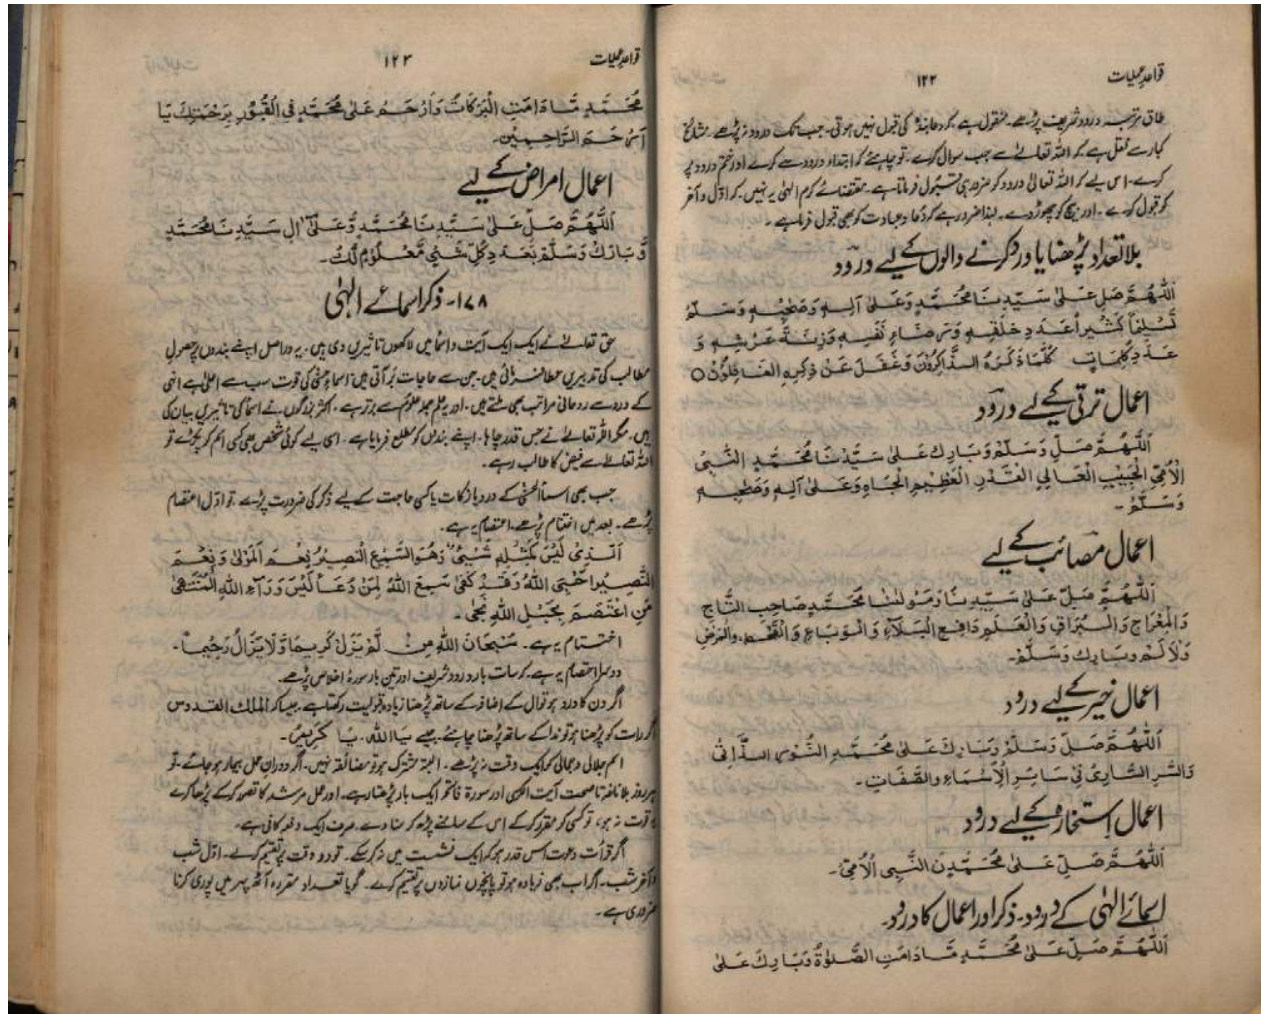 قواعدِ عملیات
۱۲۳
طاق مرتبہ درود شریف پڑھے۔ منقول ہے کہ دعا بندہ کی قبول نہیں ہوتی۔ جب تک درود نہ پڑھے۔ مشائخ
کبار سے نقل ہے کہ اللہ تعالیٰ سے جب سوال کرے۔ تو چاہیئے کہ ابتداء درود سے کرے اور ختم درود پر
کرے۔ اس لیے کہ اللہ تعالیٰ درود کو ضرور ہی قبول فرماتا ہے۔ مقتضائے کرم الٰہی یہ نہیں۔ کہ اوّل و آخر
کو قبول کرے۔ اور بیچ کو چھوڑ دے۔ لہٰذا ضرور ہے کہ دُعا و عبادت کو بھی قبول فرمائے۔
بلا تعداد پڑھنا یا ورد کرنے والوں کے لیے درود
اَللّٰهُمَّ صَلِّ عَلىٰ سَيِّدِنَا مُحَمَّدٍ وَعَلىٰ آلِهٖ وَصَحْبِهٖ وَسَلِّمْ
تَسْلِيْمًا كَثِيْراً عَدَدِ خَلْقِهٖ وَرِضَاءِ نَفْسِهٖ وَزِيْنَةِ عَرْشِهٖ وَ
عَدَدِ كَلِمَاتِهٖ كُلَّمَا ذَكَرَهُ الذَّاكِرُوْنَ وَغَفَلَ عَنْ ذِكْرِهِ الْغَافِلُوْنَ ○
اعمال ترقی کے لیے درود
اَللّٰهُمَّ صَلِّ وَسَلِّمْ وَبَارِكْ عَلىٰ سَيِّدِنَا مُحَمَّدِ النَّبِيِّ
الْاُمِّيِّ الْحَبِيْبِ الْعَالِي الْقَدْرِ الْعَظِيْمِ الْجَاهِ وَعَلىٰ آلِهٖ وَصَحْبِهٖ
وَسَلِّمْ۔
اعمال مصائب کے لیے
اَللّٰهُمَّ صَلِّ عَلىٰ سَيِّدِنَا وَمَوْلٰنَا مُحَمَّدٍ صَاحِبِ التَّاجِ
وَالْمِعْرَاجِ وَالْبُرَاقِ وَالْعَلَمِ دَافِعِ الْبَلَآءِ وَالْوَبَاءِ وَالْقَحْطِ وَالْمَرَضِ
وَالْاَلَمِ وَبَارِكْ وَسَلِّمْ۔
اعمال خیر کے لیے درود
اَللّٰهُمَّ صَلِّ وَسَلِّمْ وَبَارِكْ عَلىٰ مُحَمَّدِ النُّوْرِ الذَّاتِيْ
وَالسِّرِّ السَّارِيْ فِيْ سَايِرِ الْاَسْمَاءِ وَالصِّفَاتِ۔
اعمال استخارہ کے لیے درود
اَللّٰهُمَّ صَلِّ عَلىٰ مُحَمَّدٍ نِ النَّبِيِّ الْاُمِّيِّ۔
اسمائے الٰہی کے درود۔ ذکر اور اعمال کا درود۔
اَللّٰهُمَّ صَلِّ عَلىٰ مُحَمَّدٍ مَّا دَامَتِ الصَّلٰوةُ وَبَارِكْ عَلىٰ
قواعدِ عملیات
۱۲۴
مُحَمَّدٍ مَّا دَامَتِ الْبَرَكَاتُ وَارْحَمْ عَلىٰ مُحَمَّدٍ فِي الْقُبُوْرِ بِرَحْمَتِكَ يَا
اَرْحَمَ الرَّاحِمِيْنَ۔
اعمال امراض کے لیے
اَللّٰهُمَّ صَلِّ عَلىٰ سَيِّدِنَا مُحَمَّدٍ وَّعَلىٰ اٰلِ سَيِّدِنَا مُحَمَّدٍ
وَّبَارِكْ وَسَلِّمْ بَعَدَدِ كُلِّ شَيْءٍ مَّعْلُوْمٍ لَّكَ۔
۱۷۸۔ ذکر اسمائے الٰہی
حق تعالیٰ نے ایک ایک آیت و اسمأ میں لاکھوں تاثیریں دی ہیں۔ یہ دراصل اپنے بندوں پر حصولِ
مطالب کی تدبیریں عطا فرمائی ہیں۔ جن سے حاجات بَر آتی ہیں۔ اسماءِ حسنیٰ کی قوت سب سے اعلیٰ ہے انہی
کے ورد سے روحانی مراتب بھی ملتے ہیں۔ اور یہ علم جملہ علوم سے برتر ہے۔ اکثر بزرگوں نے اسمأ کی تاثیریں بیان کی
ہیں۔ مگر اللہ تعالےٰ نے جس قدر چاہا۔ اپنے بندوں کو مطلع فرمایا ہے۔ اسی لیے کوئی شخص بھی کسی اسم کو پڑھے تو
اللہ تعالےٰ سے فیض کا طالب رہے۔
جب بھی اسمأ الحسنیٰ کے ورد یا زکات یا کسی حاجت کے لیے ذکر کی ضرورت پڑے۔ تو اوّل اعتصام
پڑھے۔ بعد میں اختتام پڑھے۔ اعتصام یہ ہے۔
اَلَّذِيْ لَيْسَ كَمِثْلِهٖ شَيْئٌ وَهُوَ السَّمِيْعُ الْبَصِيْرُ نِعْمَ الْمَوْلٰى وَنِعْمَ
النَّصِيْرُ حَسْبِيَ اللّٰهُ وَقَدْ كَفٰى سَمِعَ اللّٰهُ لِمَنْ دَعَا لَيْسَ وَرَآءَ اللّٰهِ الْمُنْتَهٰى
مَنِ اعْتَصَمَ بِحَبْلِ اللّٰهِ نَجٰى۔
اختتام یہ ہے۔ سُبْحَانَ اللّٰهِ مِنْ لَّمْ يَزَلْ كَرِيْمًا وَّلَا يَزَالُ رَحِيْمًا۔
دوسرا اختصام یہ ہے۔ کہ سات بار درود شریف اور تین بار سورۃ اخلاص پڑھے۔
اگر دن کا ورد ہو تو ال کے اضافہ کے ساتھ پڑھنا زیادہ قبولیت رکھتا ہے۔ جیسا کہ الملک القدوس
اگر رات کو پڑھنا ہو تو ندا کے ساتھ پڑھنا چاہئے۔ جیسے یَا اللہ۔ یَا کَرِیْمُ۔
اسم جلالی و جمالی کو ایک وقت نہ پڑھے۔ البتہ مشترک ہو تو مضائقہ نہیں۔ اگر دورانِ عمل بیمار ہو جائے۔ تو
ہر روز بلا ناغہ تا صحت آیت الکرسی اور سورۃ فاتحہ ایک بار پڑھتا رہے۔ اور عمل مرشد کا تصور کر کے پڑھا کرے
قوت نہ ہو، تو کسی کو مقرر کر کے اس کے سامنے پڑھ کر سنا دے۔ صرف ایک دفعہ کافی ہے۔
اگر قرأت دعوت اس قدر ہو کہ ایک نشست میں نہ کر سکے۔ تو دو وقت پر تقسیم کرے۔ اوّل شب
و آخر شب۔ اگر اب بھی زیادہ ہو تو پانچوں نمازوں پر تقسیم کرے۔ گویا تعداد مقررہ آٹھ پہر میں پوری کرنا
ضروری ہے۔